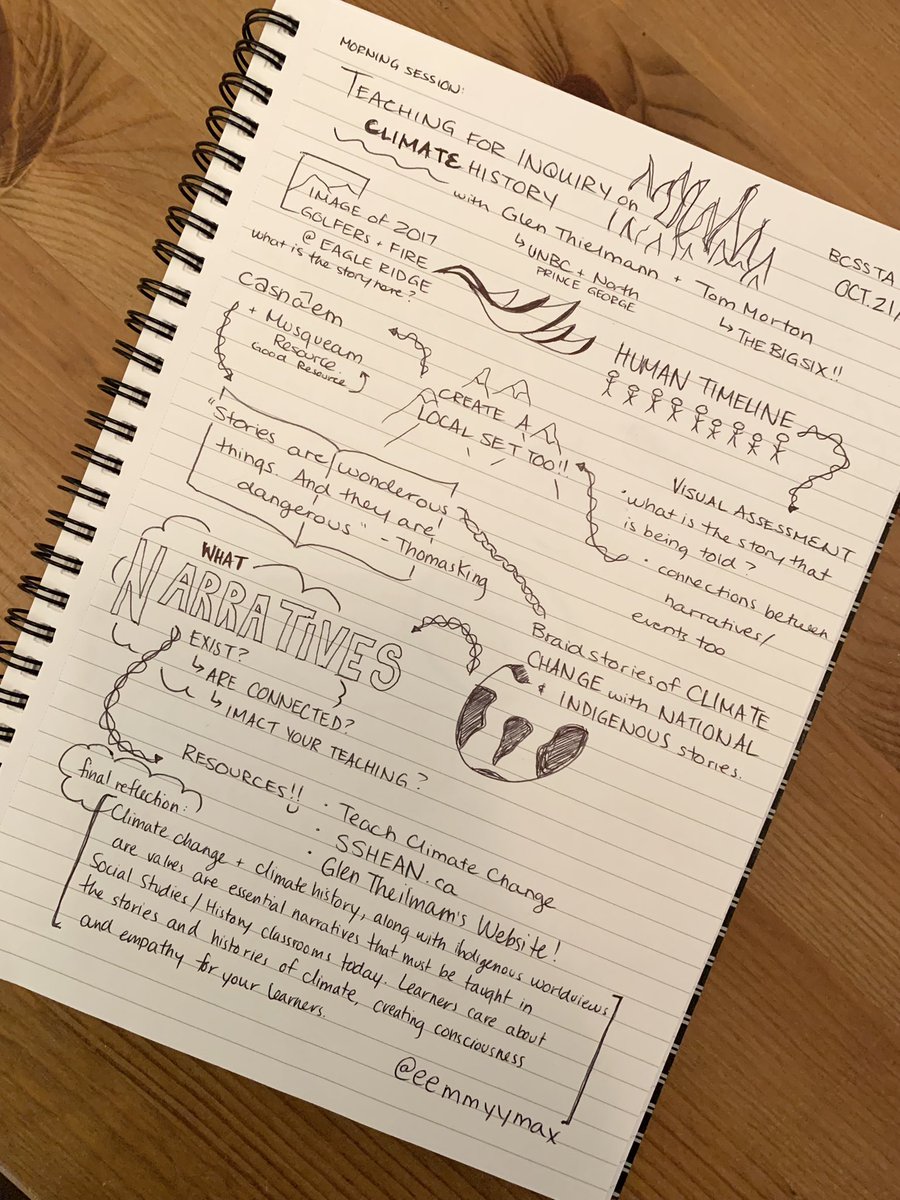 MORNING SESSION:
TEACHING FOR INQUIRY on
CLIMATE HISTORY
with Glen Thielmann + Tom Morton
↳ UNBC + North
PRINCE GEORGE
↳ THE BIG SIX!!
BCSSTA
OCT. 21/
IMAGE OF 2017
GOLFERS + FIRE
@ EAGLE RIDGE
what is the story here?
HUMAN TIMELINE
+ Musqueam
Resource.
Good Resource
CREATE A
LOCAL SET TOO!!
VISUAL ASSESSMENT
• what is the story that
is being told?
• connections between
narratives/
events too
"Stories are wonderous
things. And they are
dangerous" - Thomas King
Braid stories of CLIMATE
CHANGE with NATIONAL
& INDIGENOUS stories.
WHAT
NARRATIVES
EXIST?
↳ ARE CONNECTED?
↳ IMACT YOUR TEACHING?
RESOURCES!!
• Teach Climate Change
• SSHEAN.ca
• Glen Theilmam's Website!
final reflection:
Climate change + climate history, along with indigenous worldviews
are values are essential narratives that must be taught in
Social Studies / History classrooms today. Learners care about
the stories and histories of climate, creating consciousness
and empathy for your learners.
@eemmyymax